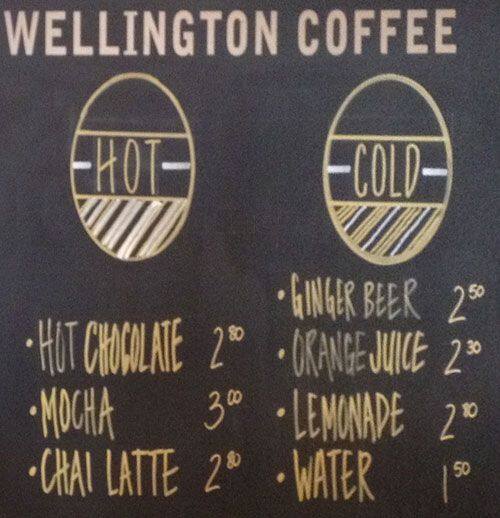 WELLINGTON COFFEE
HOT
• HOT CHOCOLATE 2 80
• MOCHA 3 00
• CHAI LATTE 2 80
COLD
• GINGER BEER 2 50
• ORANGE JUICE 2 30
• LEMONADE 2 80
• WATER 1 50